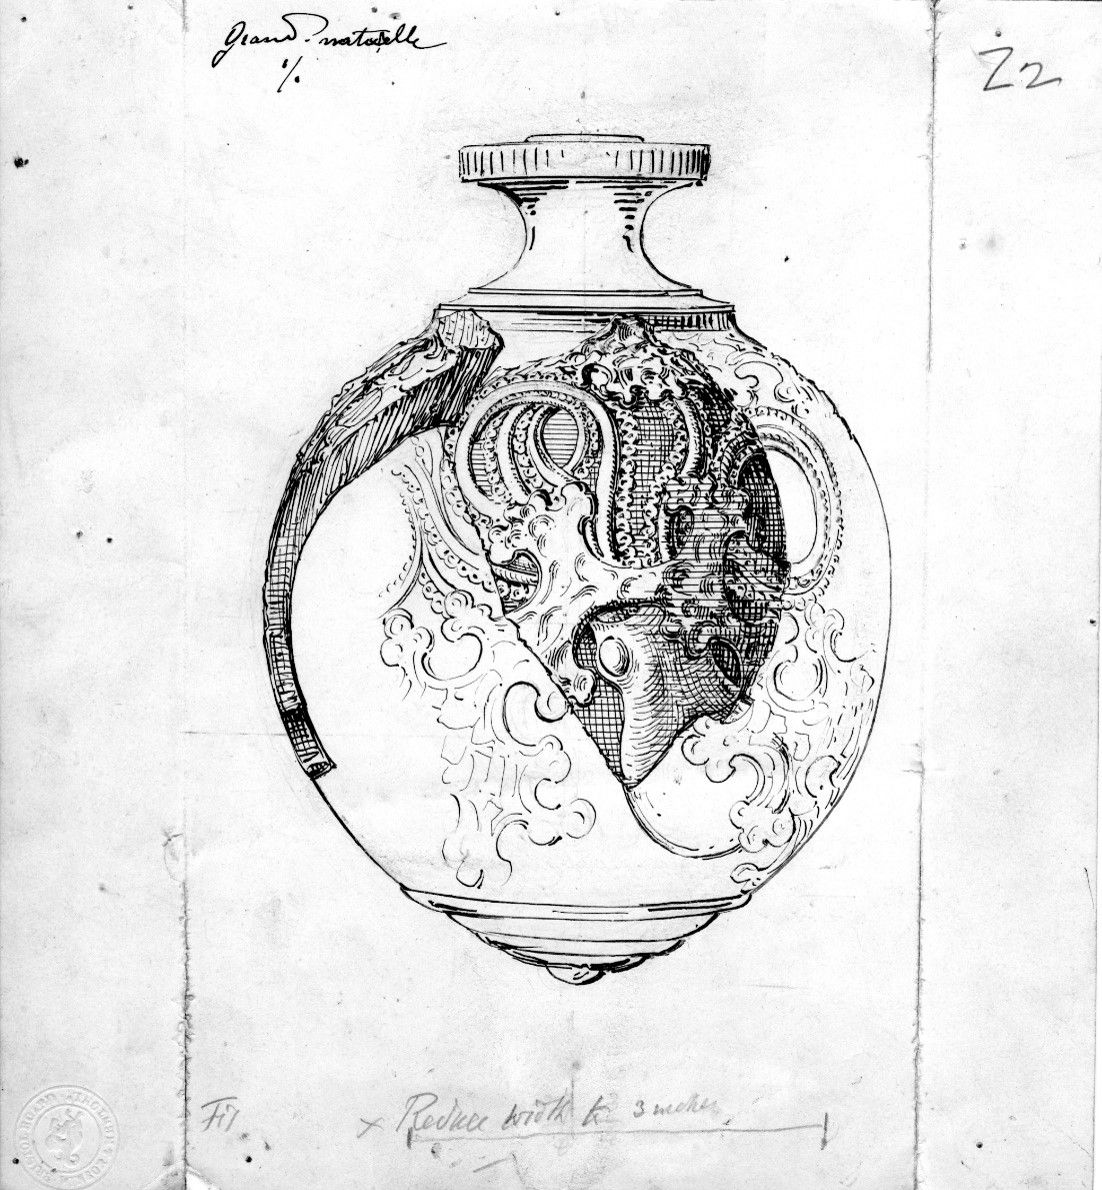 Grand. naturelle
1/1
Z2
Fig
x Reduce width to 3 inches